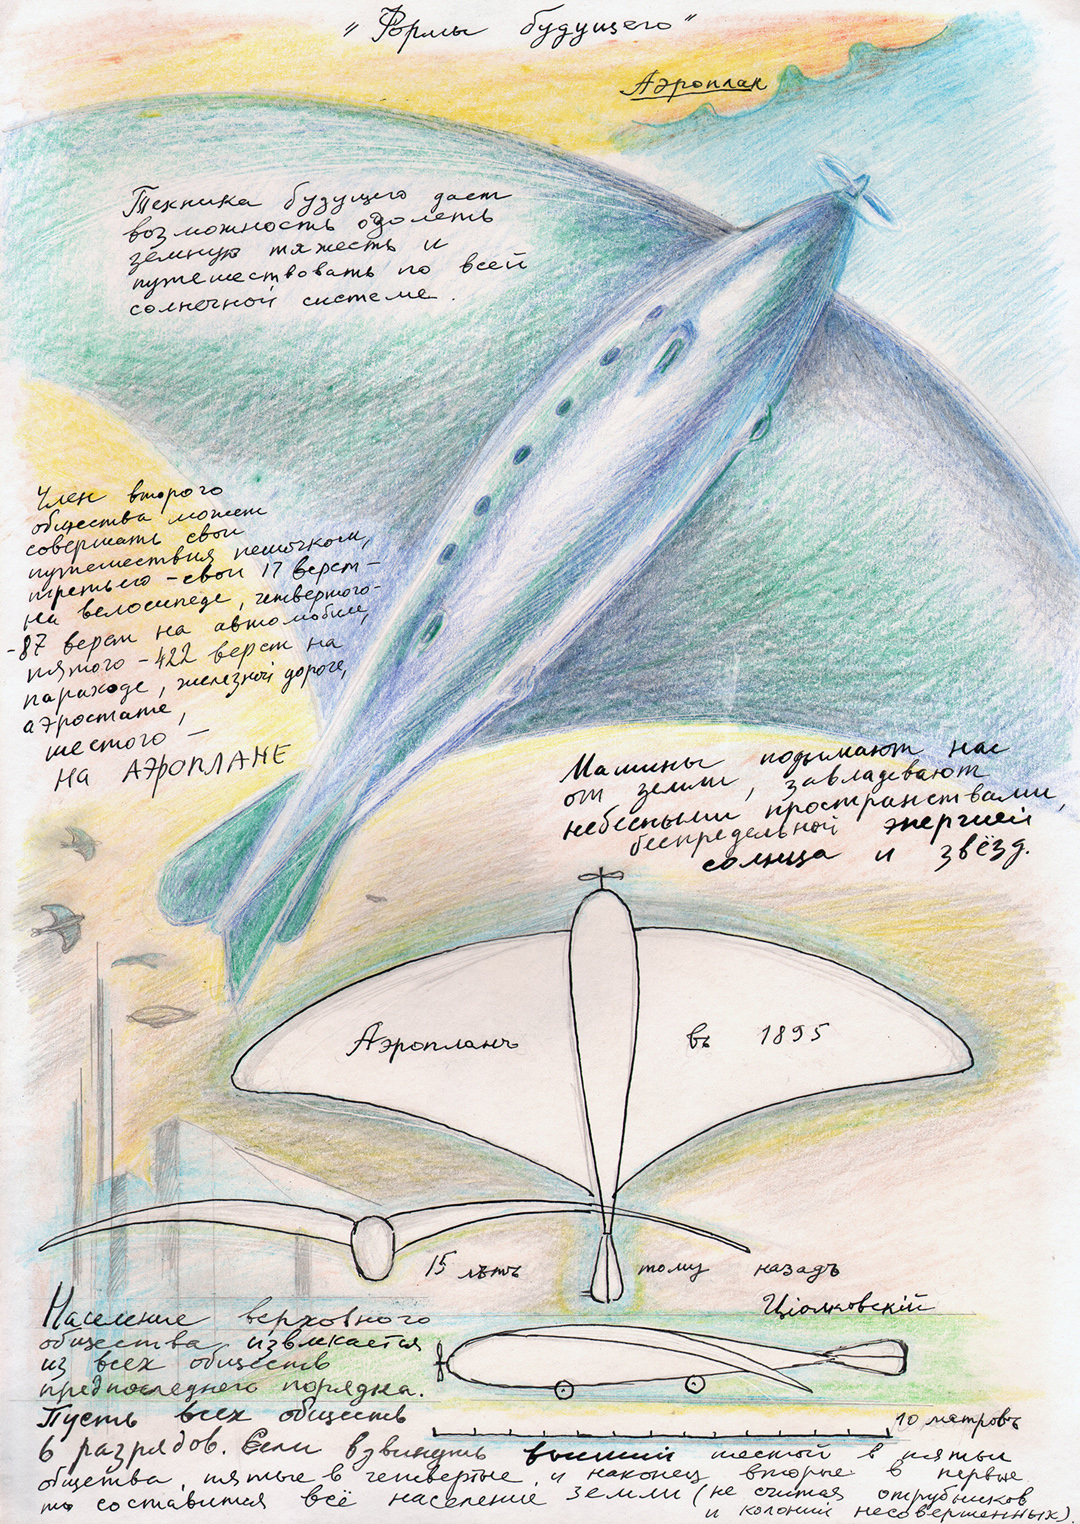 "Формы будущего"
Аэроплан
Техника будущего даст
возможность одолеть
земную тяжесть и
путешествовать по всей
солнечной системе.
Член второго
общества может
совершать свои
путешествия пешочком,
третьего - свои 17 верст -
на велосипеде, четвертого -
- 87 верст на автомобиле,
пятого - 422 верст на
параходе, железной дороге,
аэростате,
шестого -
на АЭРОПЛАНЕ
Машины подымают нас
от земли, завладевают
небесными пространствами,
беспредельной энергией
солнца и звёзд.
Аэропланъ въ 1895
15 лѣтъ тому назадъ
Циолковскій
Население верховного
общества извлекается
из всех обществ
предпоследнего порядка.
10 мѣтровъ
Пусть всех обществ
6 разрядов. Если взвинуть высший шестой в пятые
общества, пятые в четвертые, и наконец вторые в первые
то составится всё население земли (не считая отрубников
и колоний несовершенных).